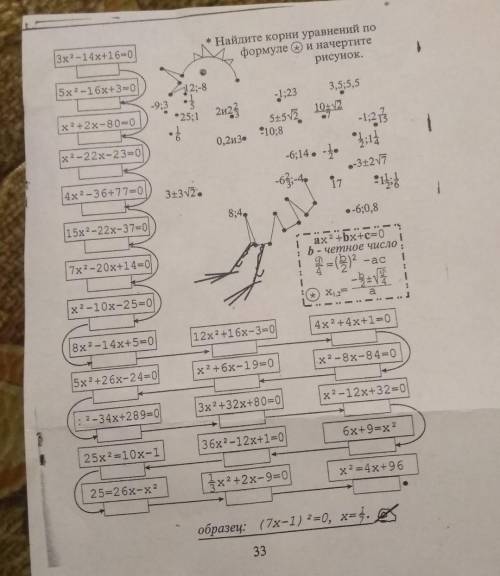 * Найдите корни уравнений по
формуле * и начертите
рисунок.
3x²-14x+16=0
5x²-16x+3=0
x²+2x-80=0
x²-22x-23=0
4x²-36+77=0
15x²-22x-37=0
7x²-20x+14=0
x²-10x-25=0
8x²-14x+5=0
12x²+16x-3=0
4x²+4x+1=0
5x²+26x-24=0
x²+6x-19=0
x²-8x-84=0
²-34x+289=0
3x²+32x+80=0
x²-12x+32=0
25x²=10x-1
36x²-12x+1=0
6x+9=x²
25=26x-x²
1/3x²+2x-9=0
x²=4x+96
12;-8
-9;3
1/5
25;1
1/6
2и2 2/3
0,2и3
-1;23
5±5√2
-10;8
3,5;5,5
-1;2 7/15
1/2;1 1/4
-6;14
-1/2
-3±2√7
-6 2/3;-4
17
3±3√2
8;4
-6;0,8
ax²+bx+c=0
b - четное число
D/4=(b/2)² -ac
* x₁,₂= (-b/2±√D/4)/a
образец: (7x-1)²=0, x=1/7.
33